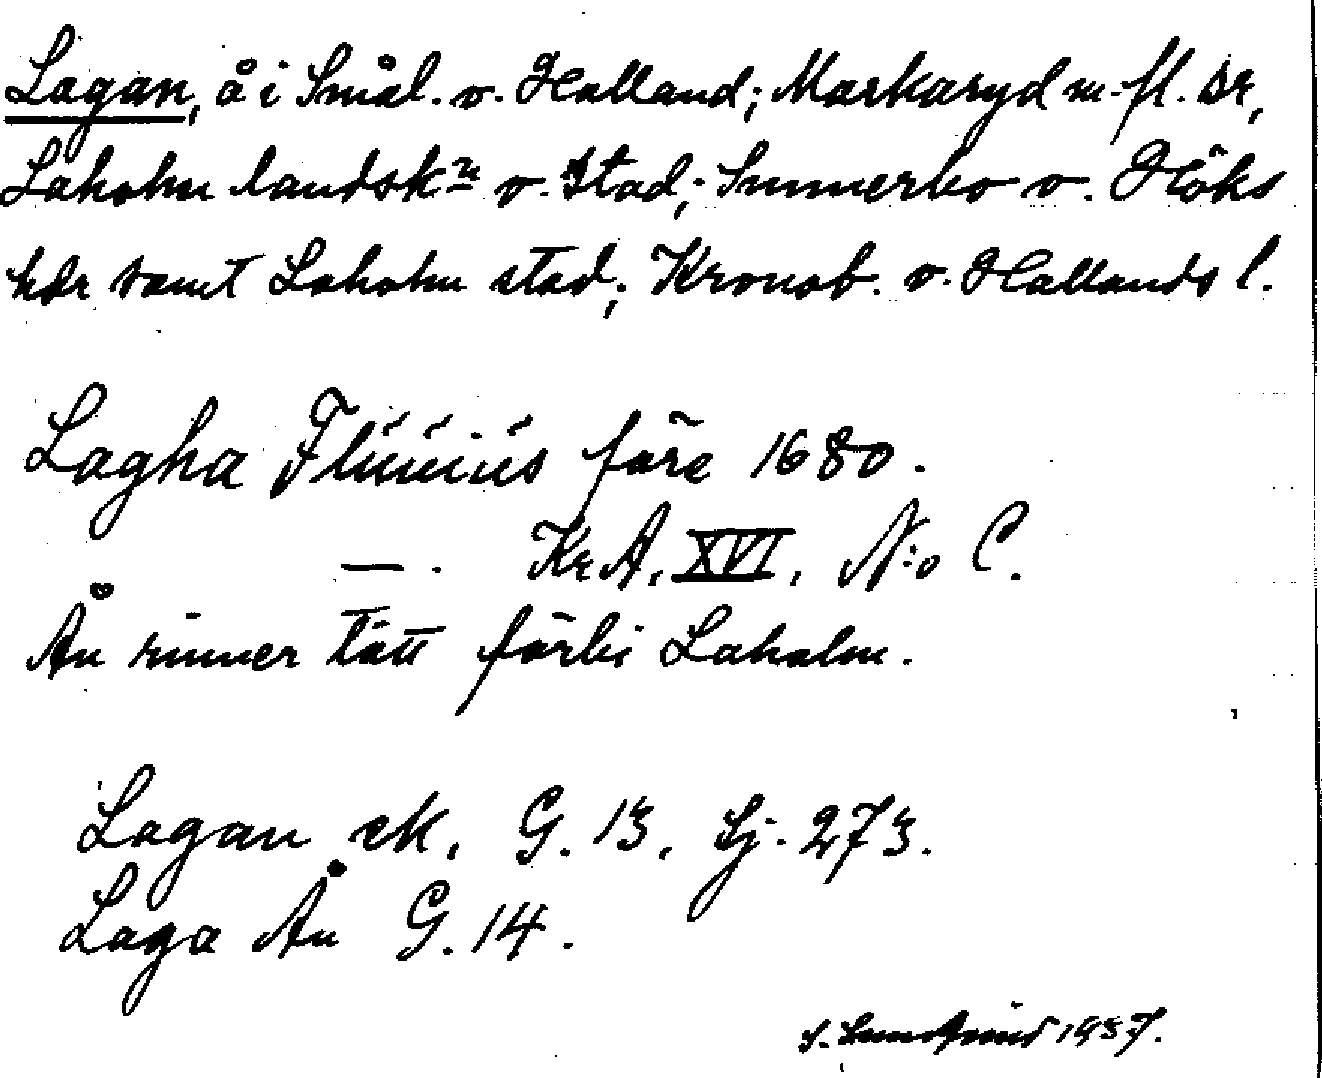 Lagan, å i Smål. o. Halland; Markaryd m. fl. snr,
Laholm landskn o. Stad; Sunnerbo o. Höks
hdr samt Laholm stad; Kronob. o. Hallands l.
Lagha Flúúiús före 1680.
—. KrA, XVI, N:o C.
Ån rinner tätt förbi Laholm.
Lagan ek. G. 13, Sj. 273.
Laga Ån G. 14.
1937.